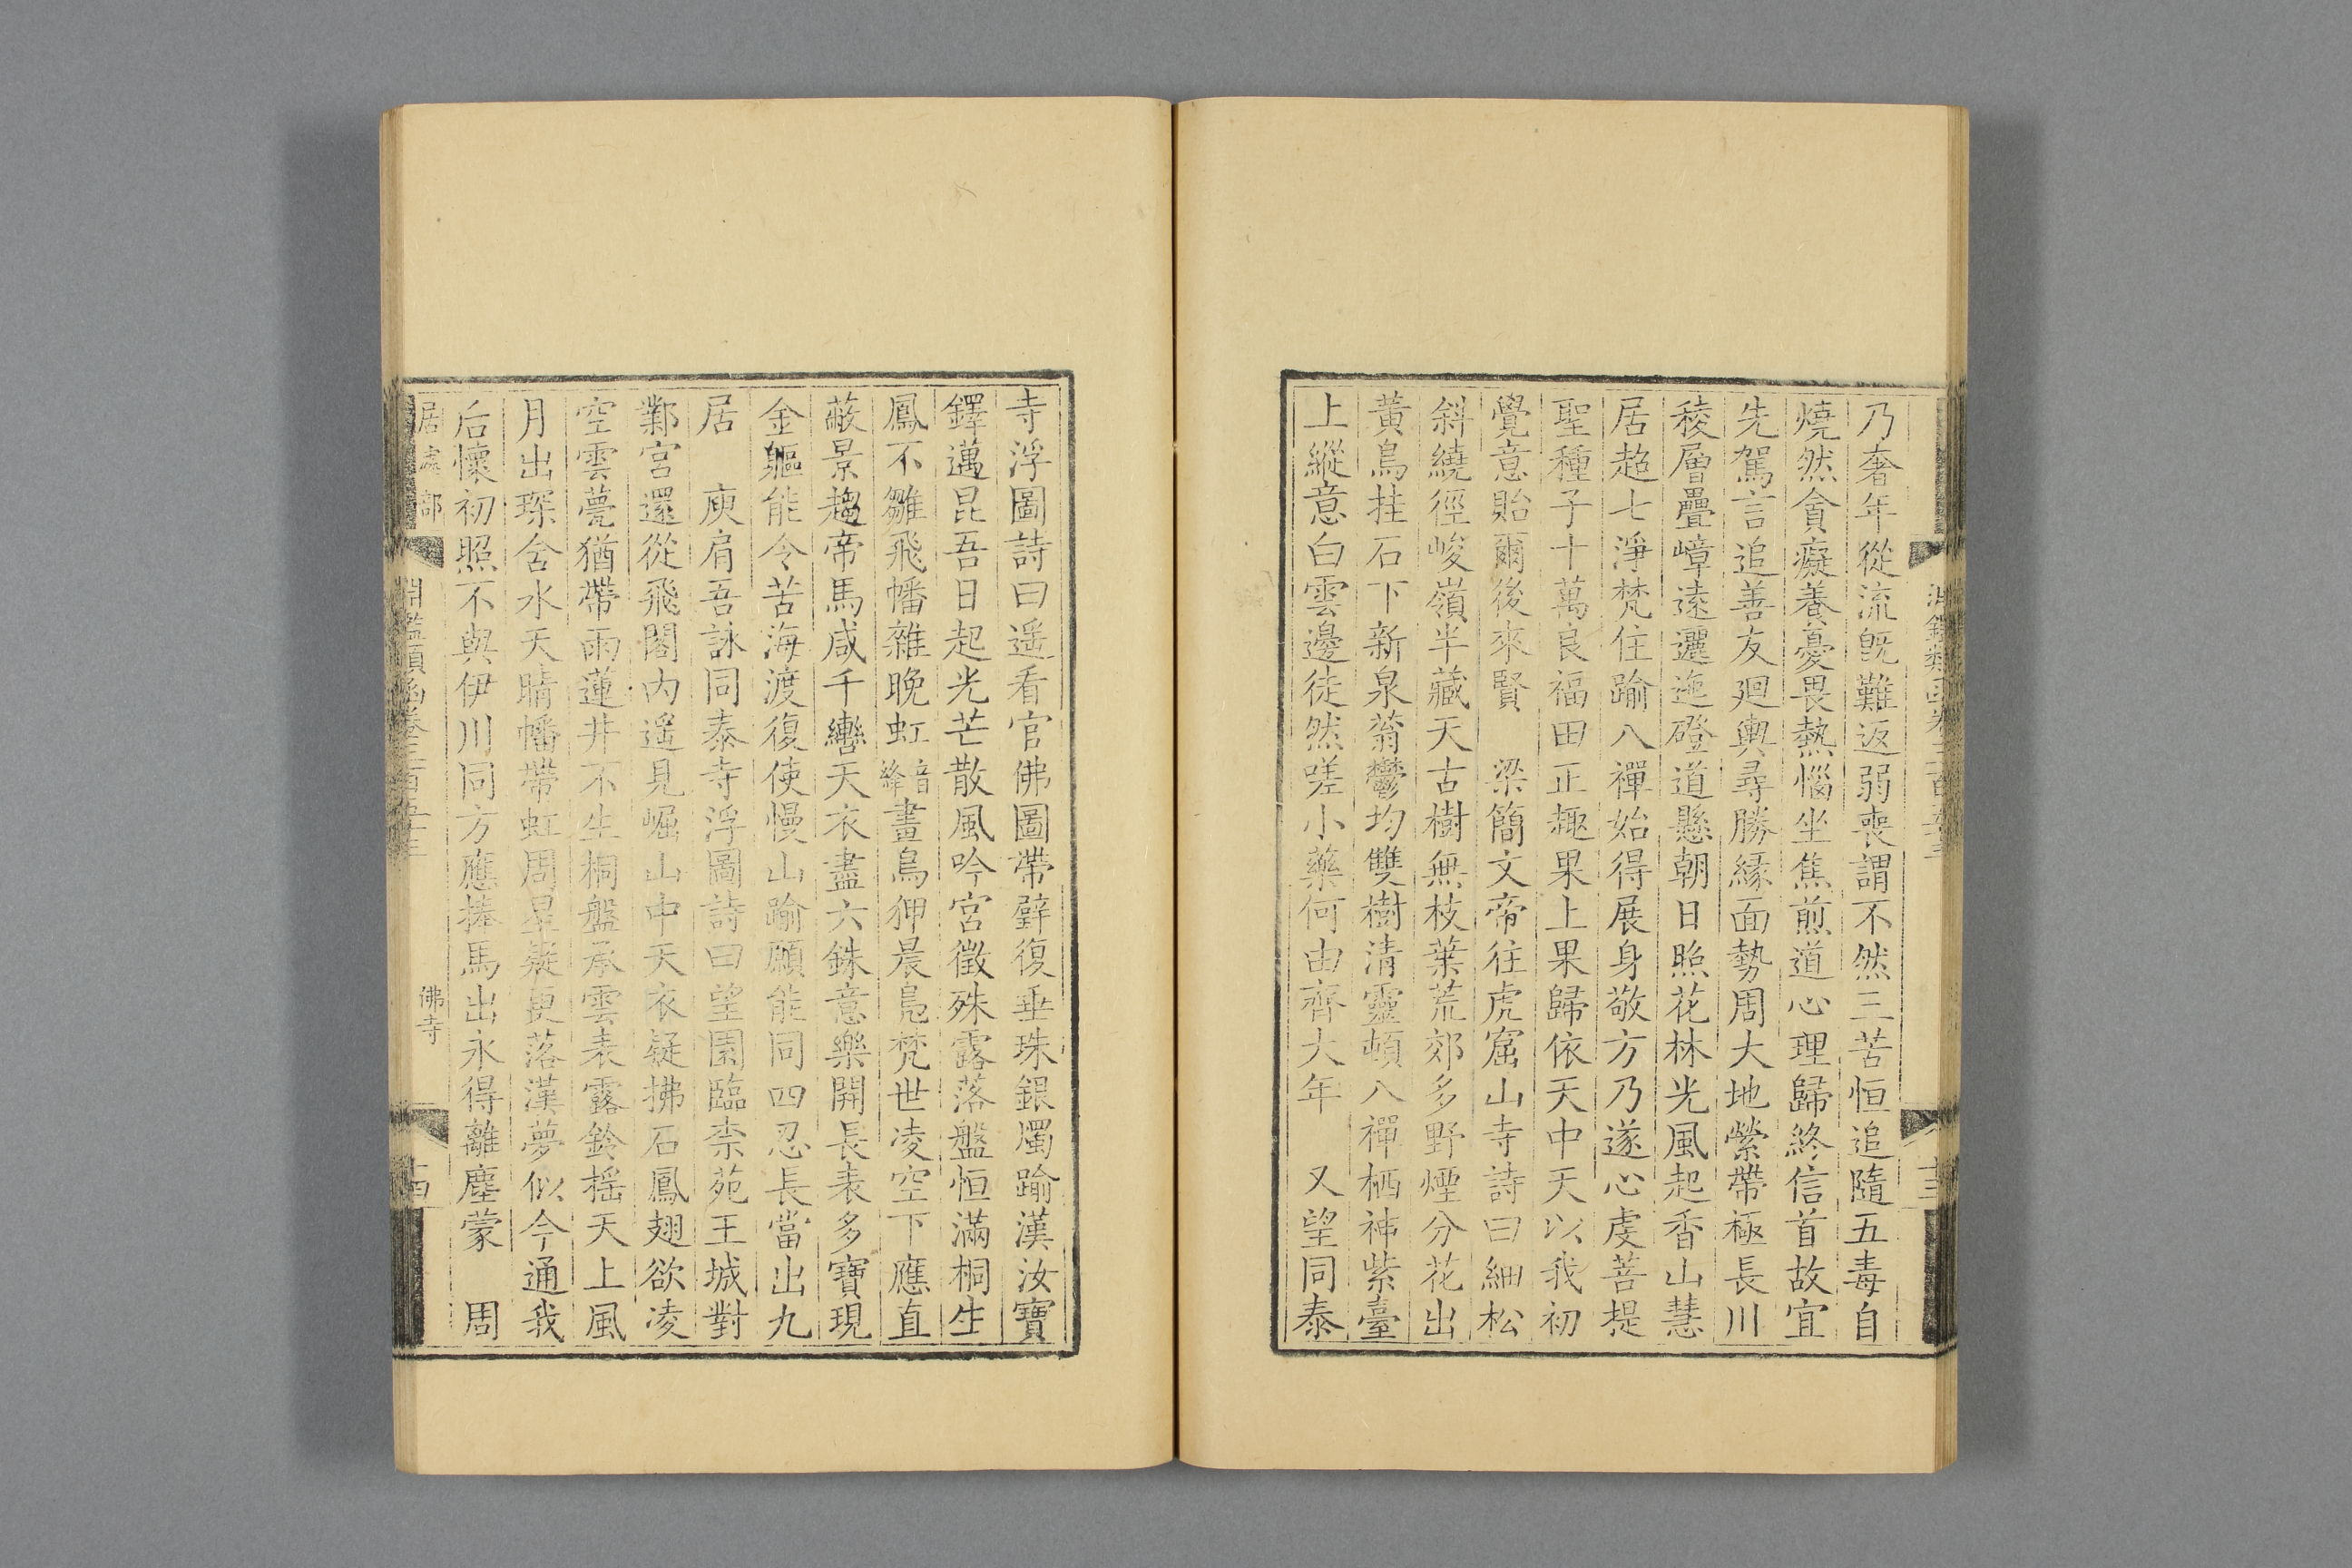 乃奢年從流既難返弱喪謂不然三苦恒追隨五毒自
燒然貪癡養憂畏熱惱坐焦煎道心理歸終信首故宜
先駕言追善友廻輿尋勝緣面勢周大地縈帶極長川
稜層疊嶂遠邐迤磴道懸朝日照花林光風起香山慧
居超七淨梵住踰八禪始得展身敬方乃遂心虔菩提
聖種子十萬良福田正趣果上果歸依天中天以我初
覺意貽爾後來賢　梁簡文帝往虎窟山寺詩曰細松
斜繞徑峻嶺半藏天古樹無枝葉荒郊多野煙分花出
黃鳥挂石下新泉蓊鬱均雙樹清靈頓八禪栖神紫臺
上縱意白雲邊徒然嗟小藥何由齊大年　又望同泰
寺浮圖詩曰遥看官佛圖帶璧復垂珠銀燭踰漢汝寶
鐸邁昆吾日起光芒散風吟宮徵殊露落盤恒滿桐生
鳳不雛飛幡雜晚虹音絳畫鳥狎晨鳧梵世凌空下應直
蔽景趨帝馬咸千轡天衣盡六銖意樂開長表多寶現
金軀能令苦海渡復使慢山踰願能同四忍長當出九
居　庾肩吾詠同泰寺浮圖詩曰望園臨柰苑王城對
鄴宮還從飛閣內遥見崛山中天衣疑拂石鳳翅欲凌
空雲甍猶帶雨蓮井不生桐盤承雲表露鈴搖天上風
月出琛含水天晴幡帶虹周星疑更落漢夢似今通我
后懷初照不與伊川同方應捧馬出永得離塵蒙　周
居處部
淵鑑類函卷三百五十三
佛寺
十四